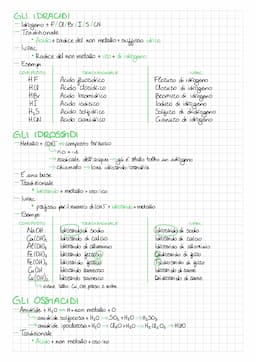 GLI IDRACIDI
— Idrogeno + F/Cl/Br/I/S/CN
— Tradizionale
• Acido + radice del non metallo + suffisso idrico
— Iupac
• Radice del non metallo + uro + di idrogeno
— Esempi
COMPOSTO TRADIZIONALE IUPAC
HF Acido fluoridrico Fluoruro di idrogeno
HCl Acido cloridrico Cloruro di idrogeno
HBr Acido bromidrico Bromuro di idrogeno
HI Acido iodidrico Ioduro di idrogeno
H₂S Acido solfidrico Solfuro di idrogeno
HCN Acido cianidrico Cianuro di idrogeno
GLI IDROSSIDI
— Metallo + (OH)⁻ → composto ternario
→ radicale dell'acqua → già è stato tolto un idrogeno
→ chiamato → ione idrossido
— È una base
— Tradizionale
• idrossido + metallo + oso/ico
— Iupac
• prefisso per il numero di (OH)⁻ + idrossido + metallo
— Esempi
COMPOSTO TRADIZIONALE IUPAC
NaOH Idrossido di sodio Idrossido di sodio
Ca(OH)₂ Idrossido di calcio
Al(OH)₃ Idrossido di alluminio
Fe(OH)₂ Idrossido ferroso
Fe(OH)₃ Idrossido
CuOH Idrossido rameoso
Cu(OH)₂ Idrossido
GLI OSSIACIDI
— Anidride + H₂O → H + non metallo + O
• anidride solforica + H₂O → SO₃ + H₂O → H₂SO₄
• anidride ipoclorosa + H₂O → Cl₂O + H₂O → H₂Cl₂O₂ → HClO
— Tradizionale
• Acido + non metallo + oso/ico